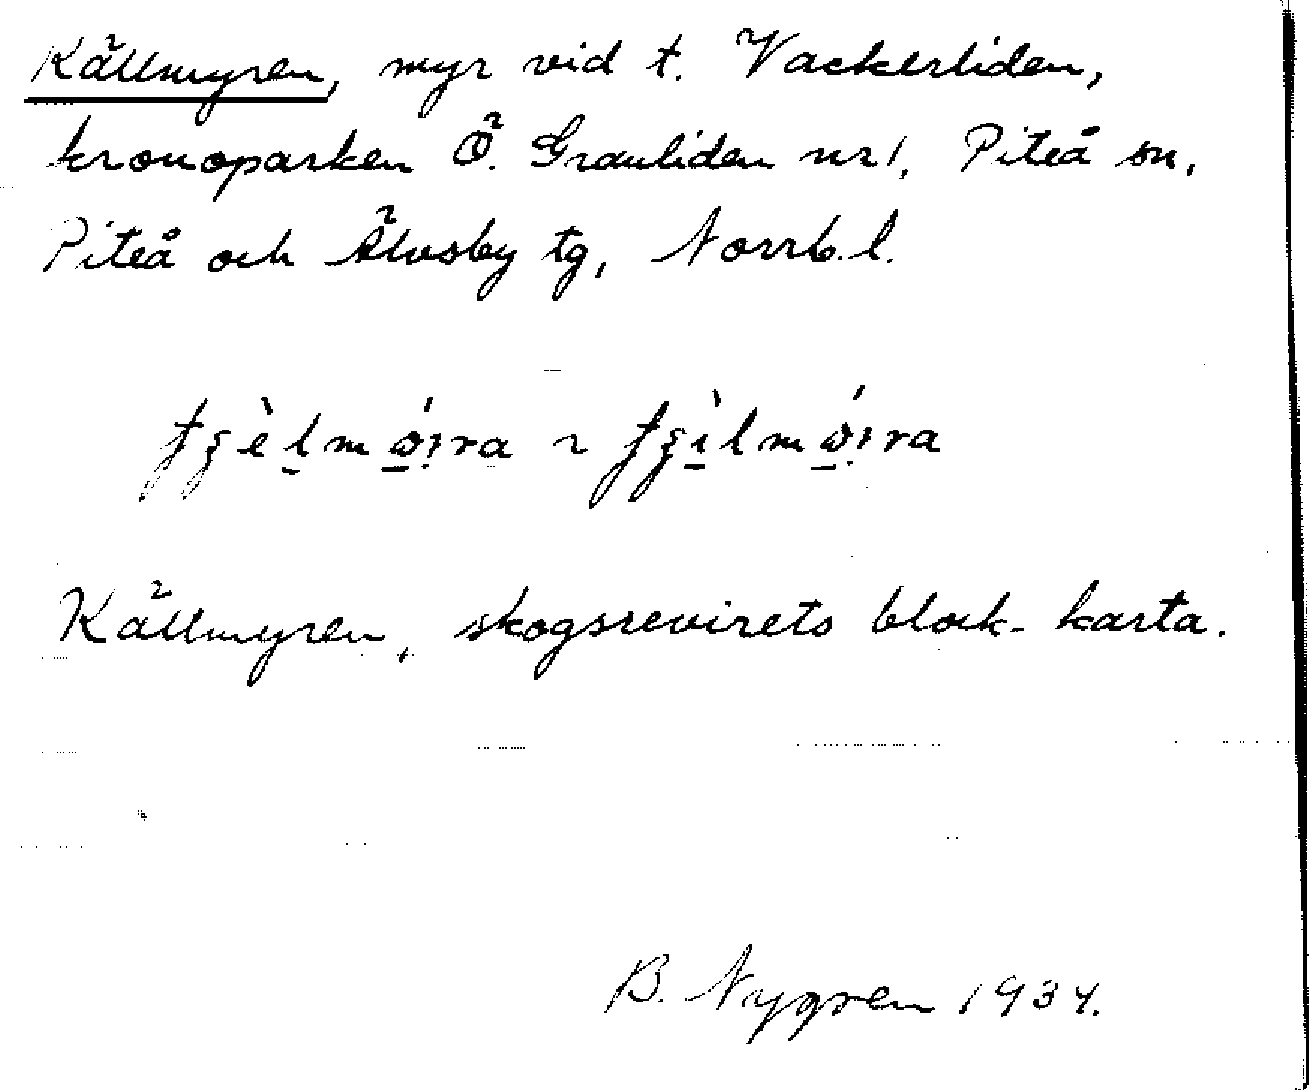 Källmyren, myr vid t. Vackerliden,
kronoparken Ö. Granliden nr 1, Piteå sn,
Piteå och Älvsby tg, Norrb. l.
Källmyren, skogsrevirets block-karta.
B. Nygren 1934.